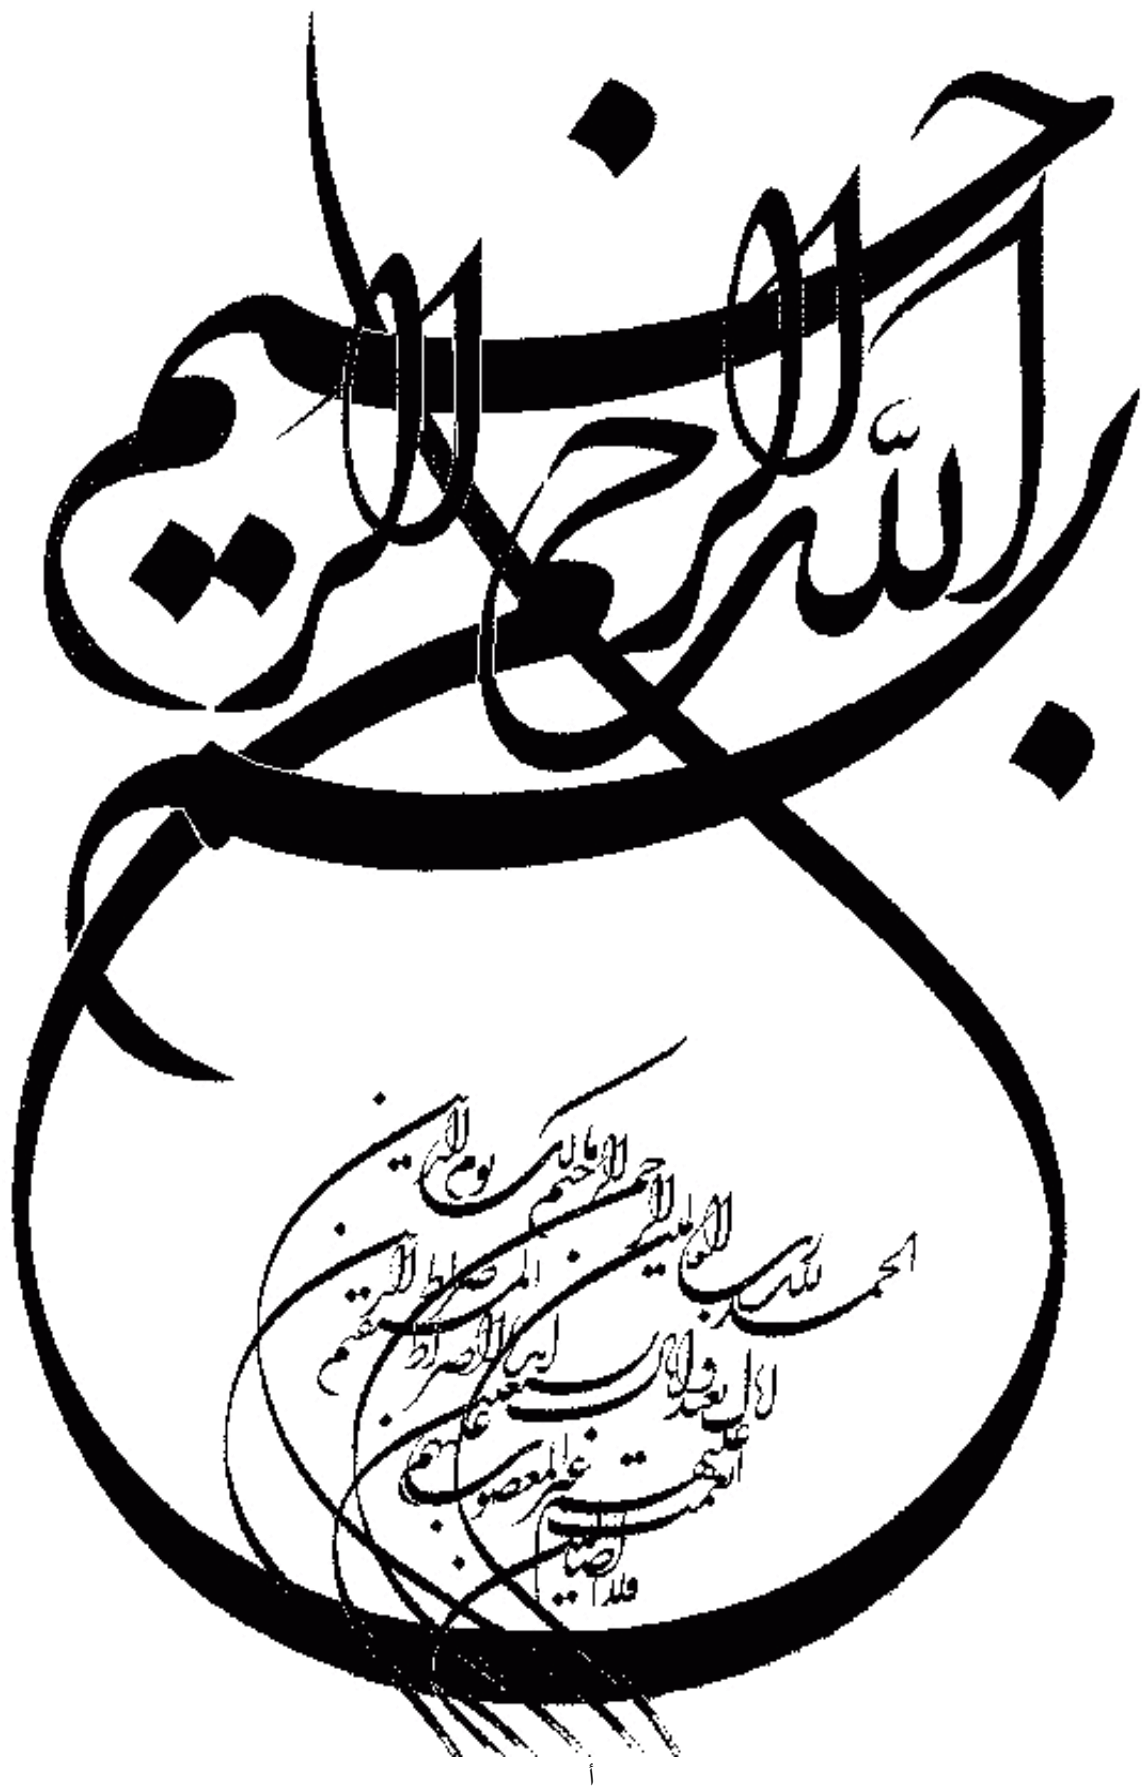 بسم الله الرحمن الرحيم
الحمد لله رب العالمين
الرحمن الرحيم
مالك يوم الدين
إياك نعبد وإياك نستعين
اهدنا الصراط المستقيم
صراط الذين
أنعمت عليهم
غير المغضوب عليهم
ولا الضالين
أ